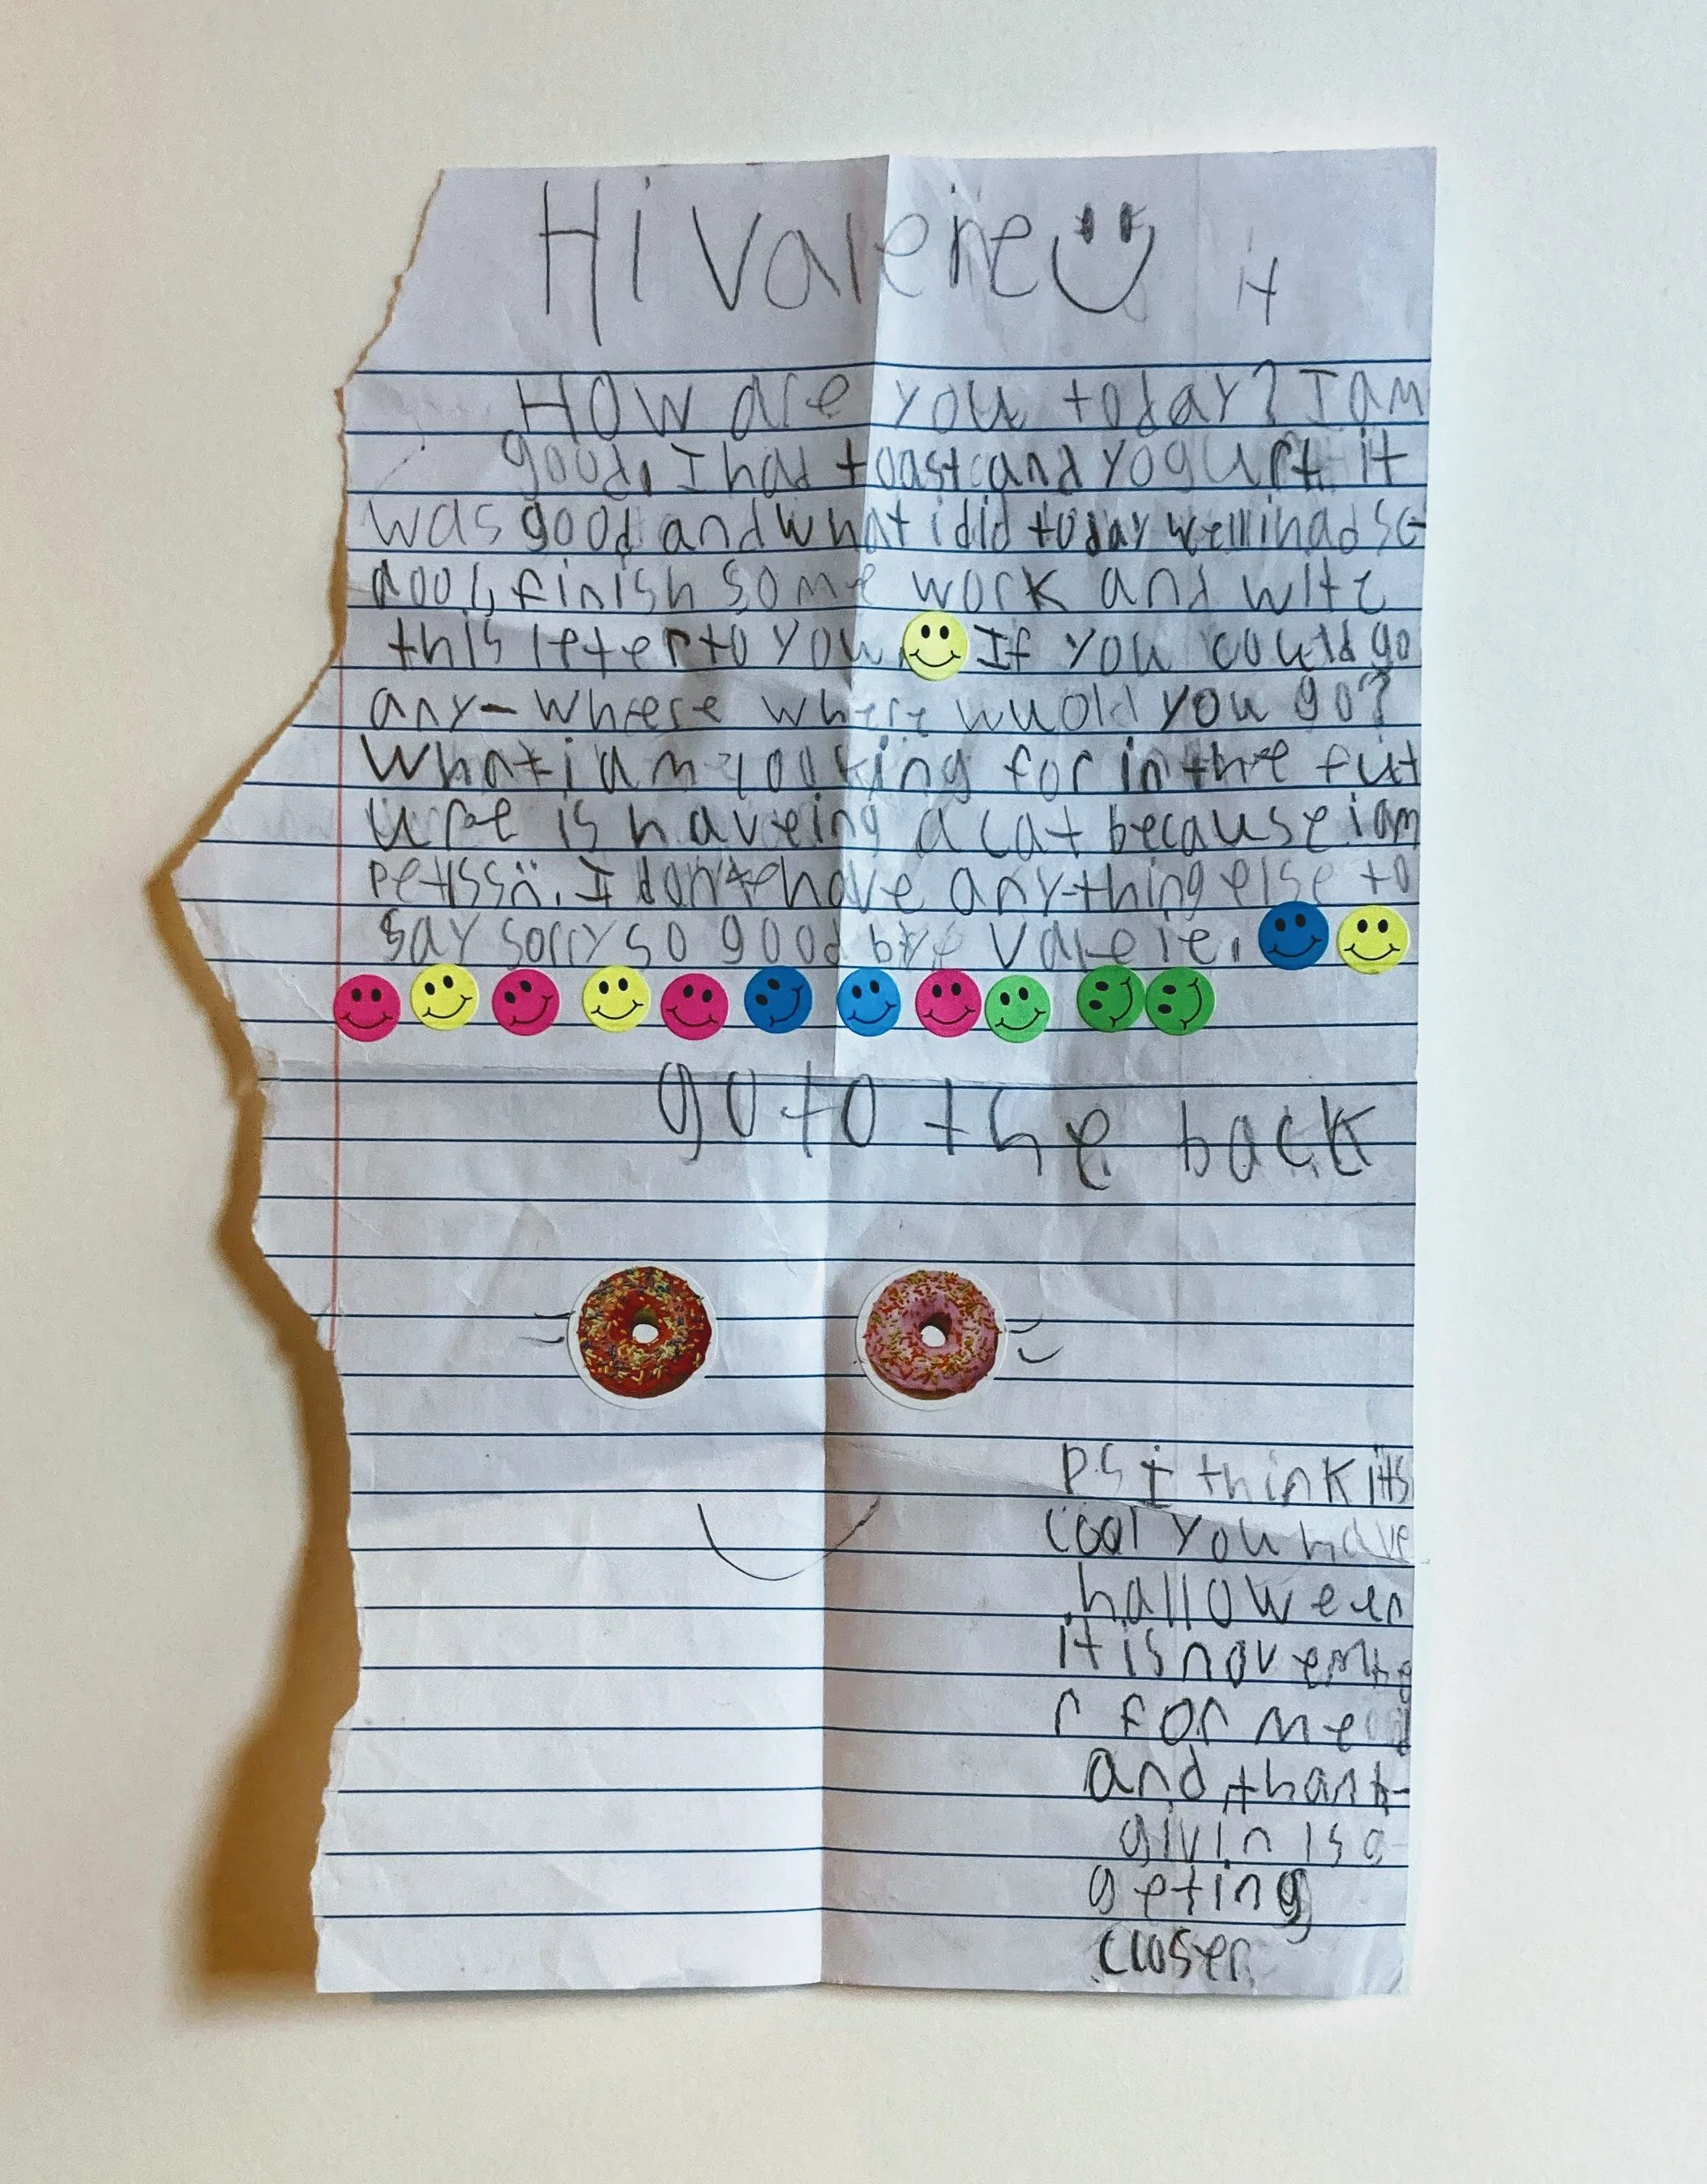 Hi Valerie
it
How are you today? I am
good. I had toast and yogurt it
was good and what i did today well i had sc-
ool, finish some work and wite
this leter to you. If you could go
any-wheere where wuold you go?
What i am looking for in the fut
ure is haveing a cat because i am
petlss. I don't have any-thing else to
say sorry so good bye Valerie.
go to the back
P.S I think its
cool you have
halloween
it is novembe
r for me
and thank-
givin is
geting
closer